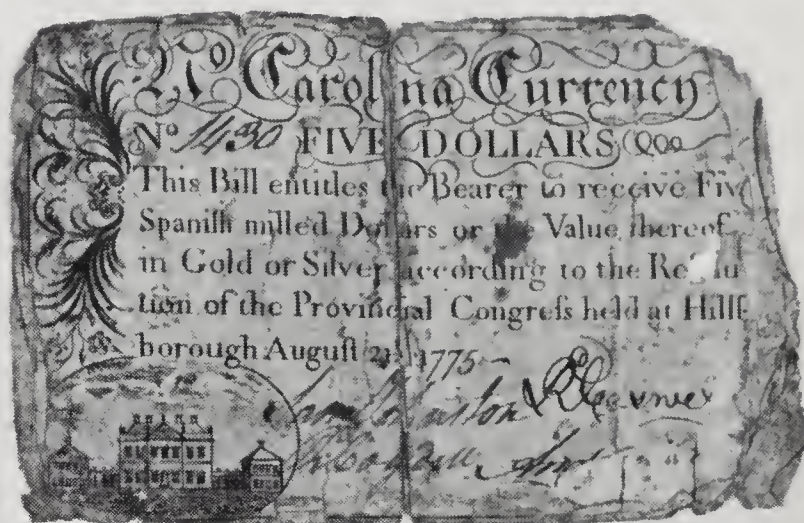 No Carolina Currency
No 1430 FIVE DOLLARS
This Bill entitles the Bearer to receive Five
Spaniſh milled Dollars or the Value thereof
in Gold or Silver according to the Reſolu
tion of the Provincial Congreſs held at Hillſ-
borough Auguſt 21 1775